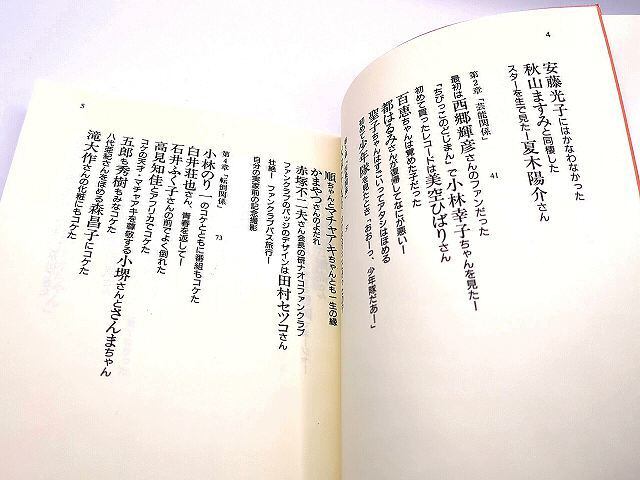 4
安藤光子にはかなわなかった
秋山ますみと同棲した
スターを生で見たー夏木陽介さん
第2章 「芸能関係」
41
最初は西郷輝彦さんのファンだった
「ちびっこのどじまん」で小林幸子ちゃんを見たー
初めて買ったレコードは美空ひばりさん
百恵ちゃんは覚えた子だった
都はるみさんが復帰してなにが悪いー
聖子ちゃんはすごいってアタシはほめる
初めて少年隊を見たとき、「おおーっ、少年隊だあー」
5
順ちゃんとマチャアキちゃんとも一生の縁
かまやつさんのよだれ
赤塚不二夫さん会長の研ナオコファンクラブ
ファンクラブのバッジのデザインは田村セツコさん
壮絶ー ファンクラブバス旅行ー
自分の実家前の記念撮影
第4章 「転倒関係」
73
小林のり一のコケとともに番組もコケた
白井荘也さん、青春を返してー
石井ふく子さんの前でよく倒れた
高見知佳とアフリカでコケた
コケの天才・マチャアキを尊敬する小堺さんとさんまちゃん
五郎も秀樹もみなコケた
八代亜紀さんをほめる森昌子にコケた
滝大作さんの化粧にもコケた